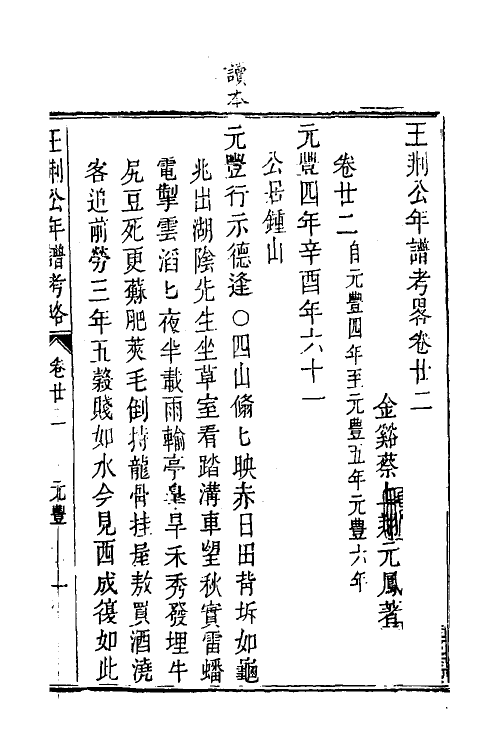 讀本
王荆公年譜考畧卷廿二
金谿蔡上翔元鳳著
卷廿二 自元豐四年至元豐五年元豐六年
元豐四年辛酉年六十一
公居鍾山
元豐行示德逢〇四山翛匕映赤日田背坼如龜
兆出湖陰先生坐草室看踏溝車望秋實雷蟠
電掣雲滔匕夜半載雨輸亭臯旱禾秀發埋牛
尻豆死更蘇肥莢毛倒持龍骨挂屋敖買酒澆
客追前勞三年五穀賤如水今見西成復如此
王荆公年譜考略 卷廿二 元豐 一